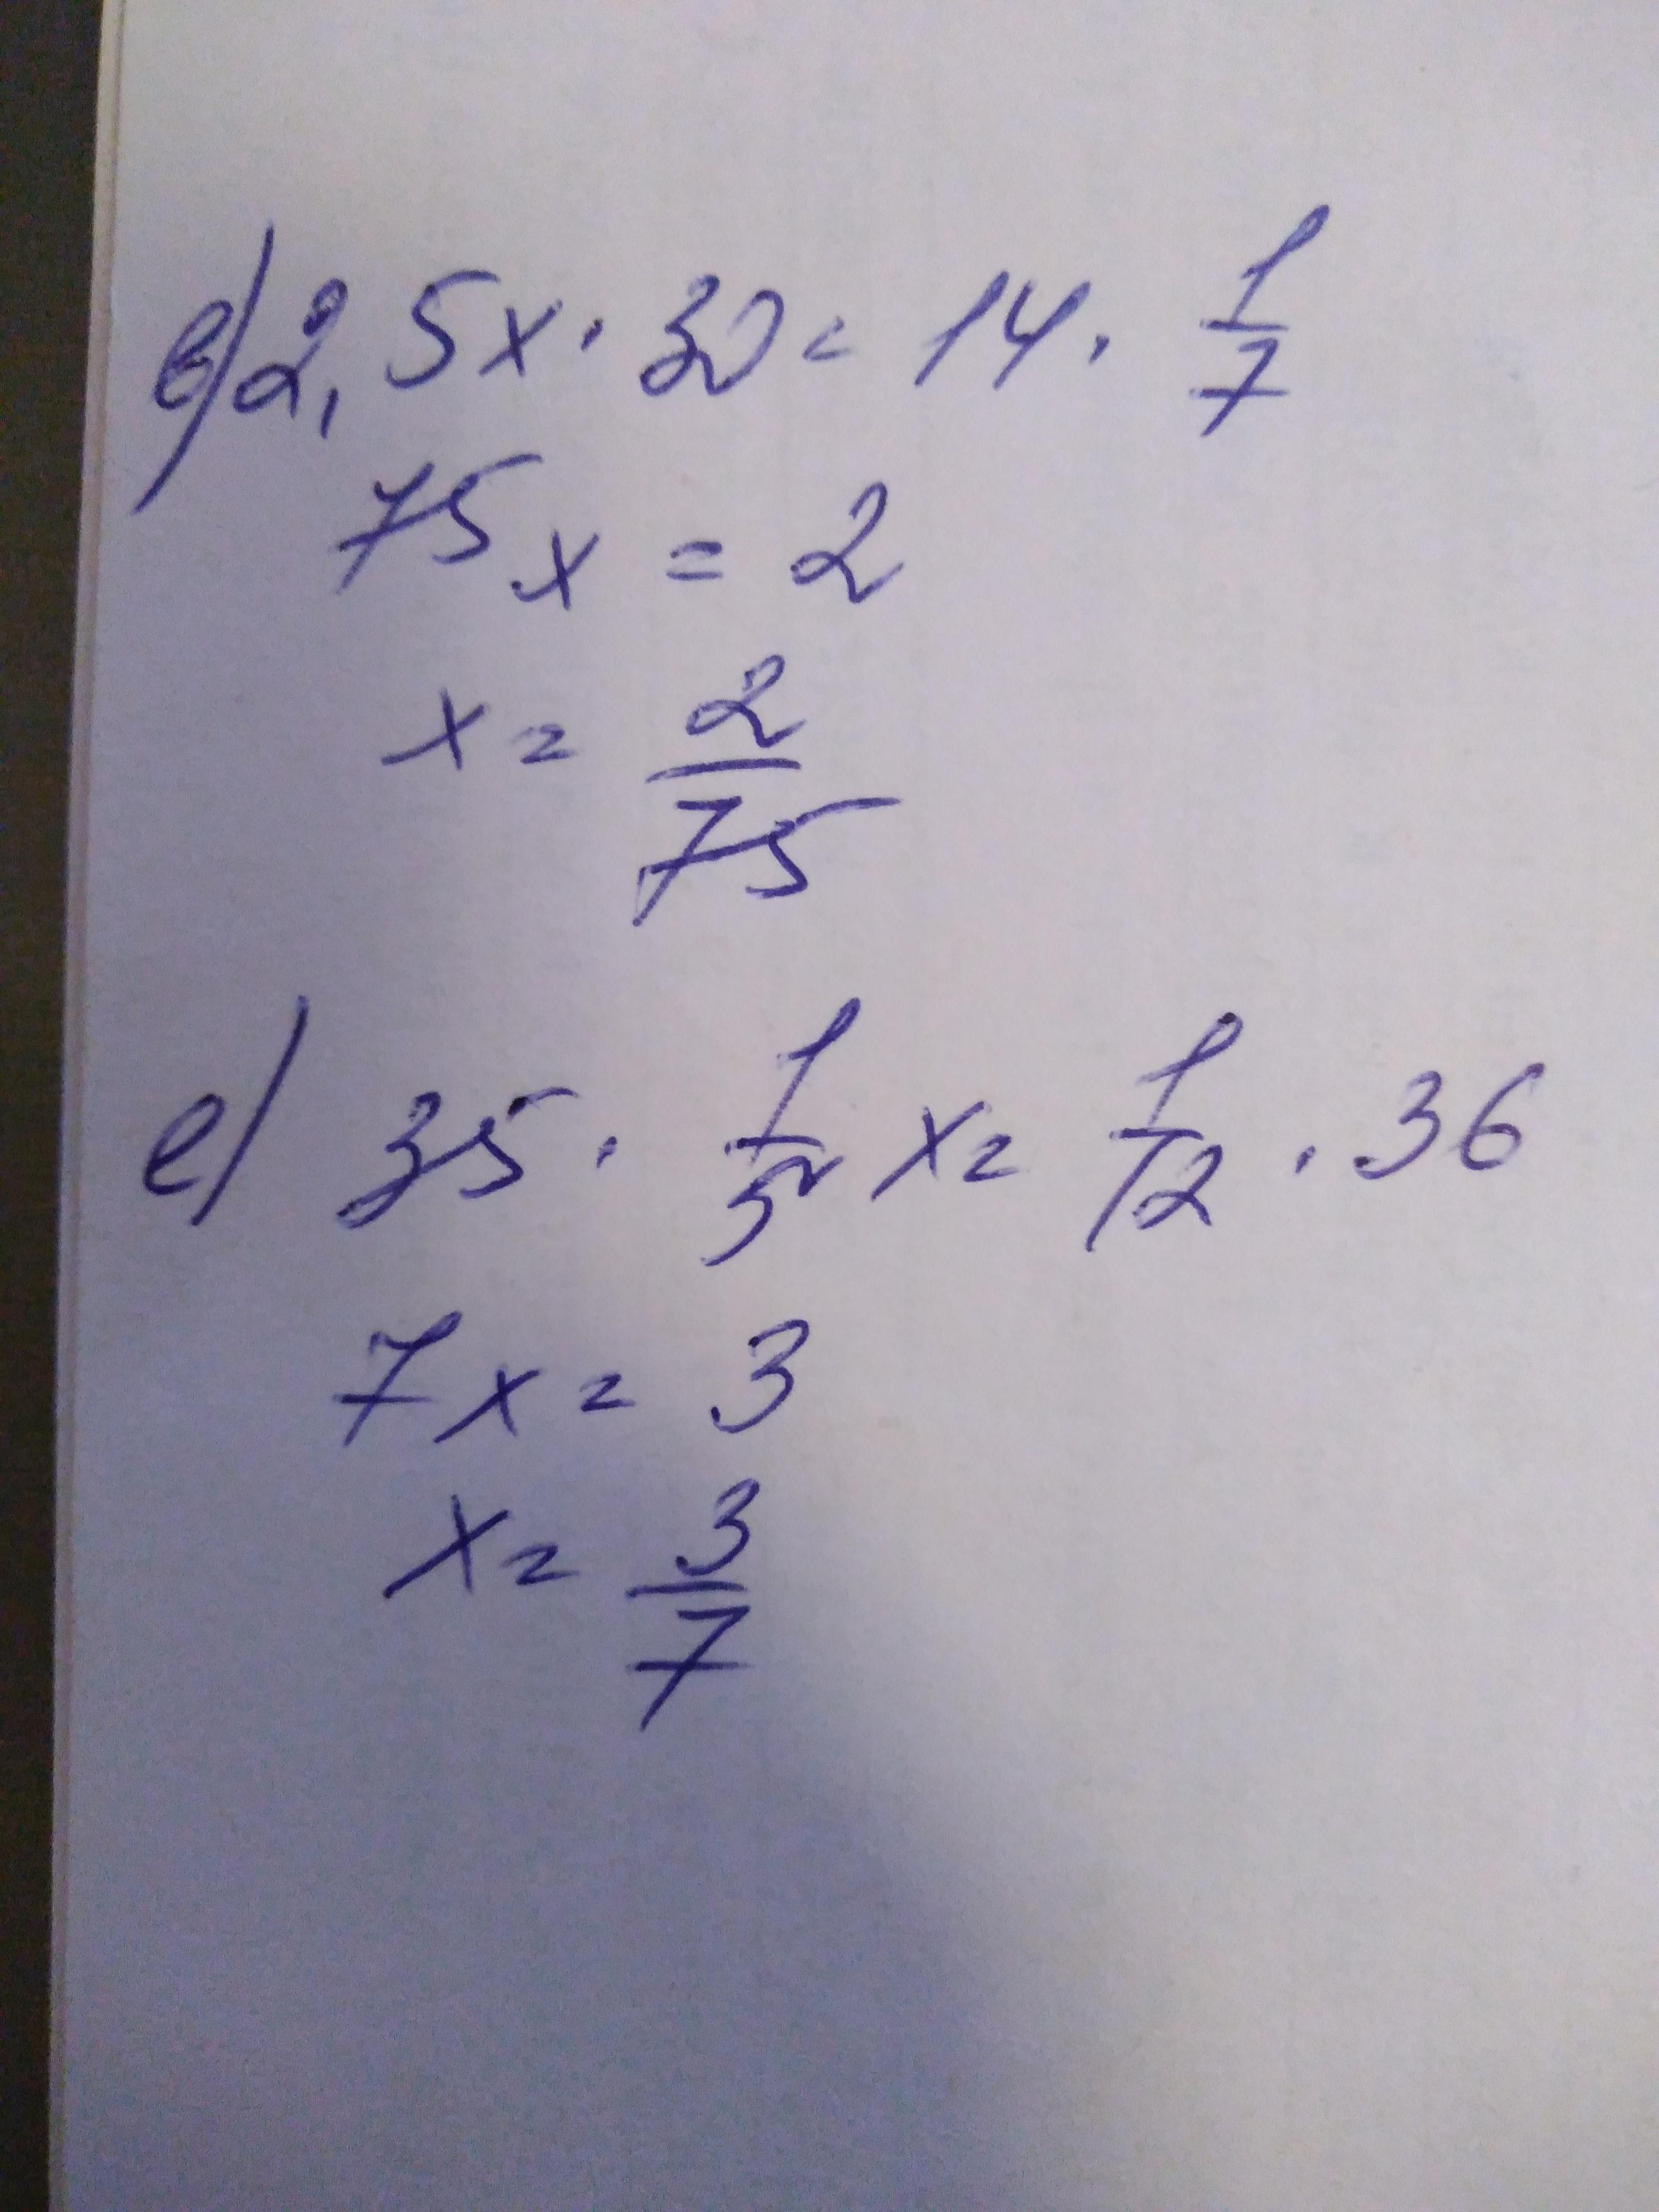 в) 2,5x · 30 = 14 · 1/7
75x = 2
x = 2/75
е) 35 · 1/5 x = 1/12 · 36
7x = 3
x = 3/7